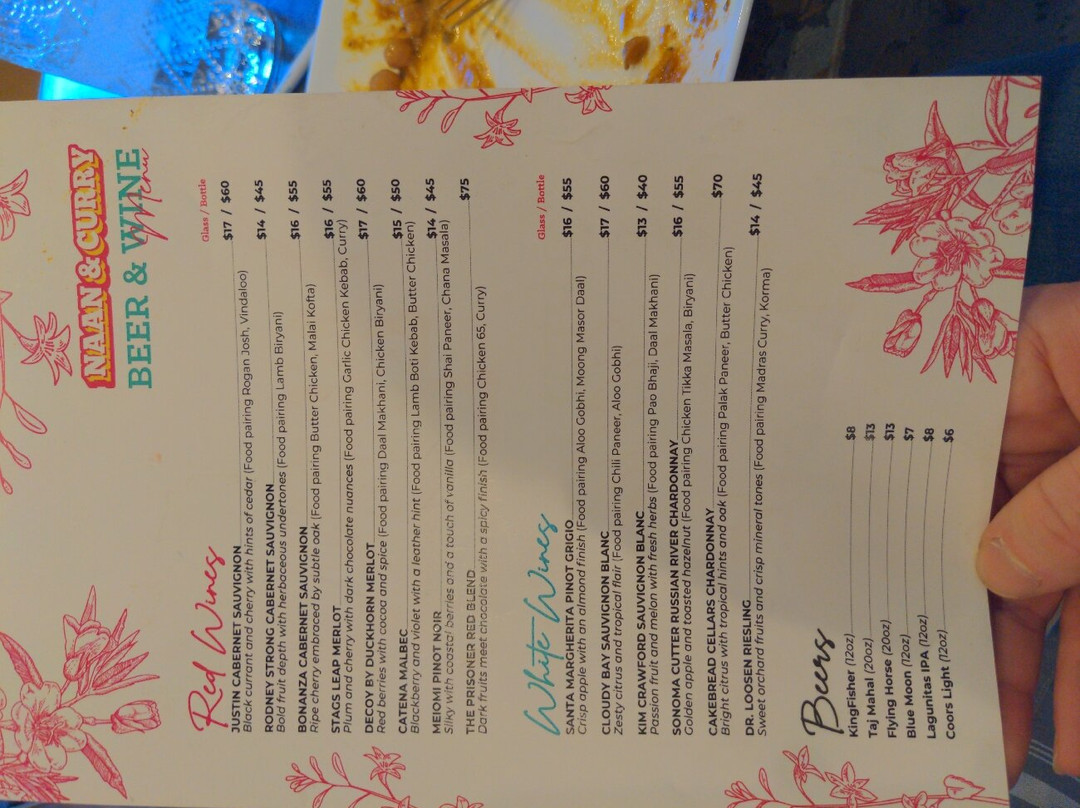 NAAN & CURRY
BEER & WINE
Menu
Red Wines
Glass / Bottle
JUSTIN CABERNET SAUVIGNON $17 / $60
Black currant and cherry with hints of cedar (Food pairing Rogan Josh, Vindaloo)
RODNEY STRONG CABERNET SAUVIGNON $14 / $45
Bold fruit depth with herbaceous undertones (Food pairing Lamb Biryani)
BONANZA CABERNET SAUVIGNON $16 / $55
Ripe cherry embraced by subtle oak (Food pairing Butter Chicken, Malai Kofta)
STAGS LEAP MERLOT $16 / $55
Plum and cherry with dark chocolate nuances (Food pairing Garlic Chicken Kebab, Curry)
DECOY BY DUCKHORN MERLOT $17 / $60
Red berries with cocoa and spice (Food pairing Daal Makhani, Chicken Biryani)
CATENA MALBEC $15 / $50
Blackberry and violet with a leather hint (Food pairing Lamb Boti Kebab, Butter Chicken)
MEIOMI PINOT NOIR $14 / $45
Silky with coastal berries and a touch of vanilla (Food pairing Shai Paneer, Chana Masala)
THE PRISONER RED BLEND $75
Dark fruits meet chocolate with a spicy finish (Food pairing Chicken 65, Curry)
White Wines
Glass / Bottle
SANTA MARGHERITA PINOT GRIGIO $16 / $55
Crisp apple with an almond finish (Food pairing Aloo Gobhi, Moong Masor Daal)
CLOUDY BAY SAUVIGNON BLANC $17 / $60
Zesty citrus and tropical flair (Food pairing Chili Paneer, Aloo Gobhi)
KIM CRAWFORD SAUVIGNON BLANC $13 / $40
Passion fruit and melon with fresh herbs (Food pairing Pao Bhaji, Daal Makhani)
SONOMA CUTTER RUSSIAN RIVER CHARDONNAY $16 / $55
Golden apple and toasted hazelnut (Food pairing Chicken Tikka Masala, Biryani)
CAKEBREAD CELLARS CHARDONNAY $70
Bright citrus with tropical hints and oak (Food pairing Palak Paneer, Butter Chicken)
DR. LOOSEN RIESLING $14 / $45
Sweet orchard fruits and crisp mineral tones (Food pairing Madras Curry, Korma)
Beers
KingFisher (12oz) $8
Taj Mahal (20oz) $13
Flying Horse (20oz) $13
Blue Moon (12oz) $7
Lagunitas IPA (12oz) $8
Coors Light (12oz) $6